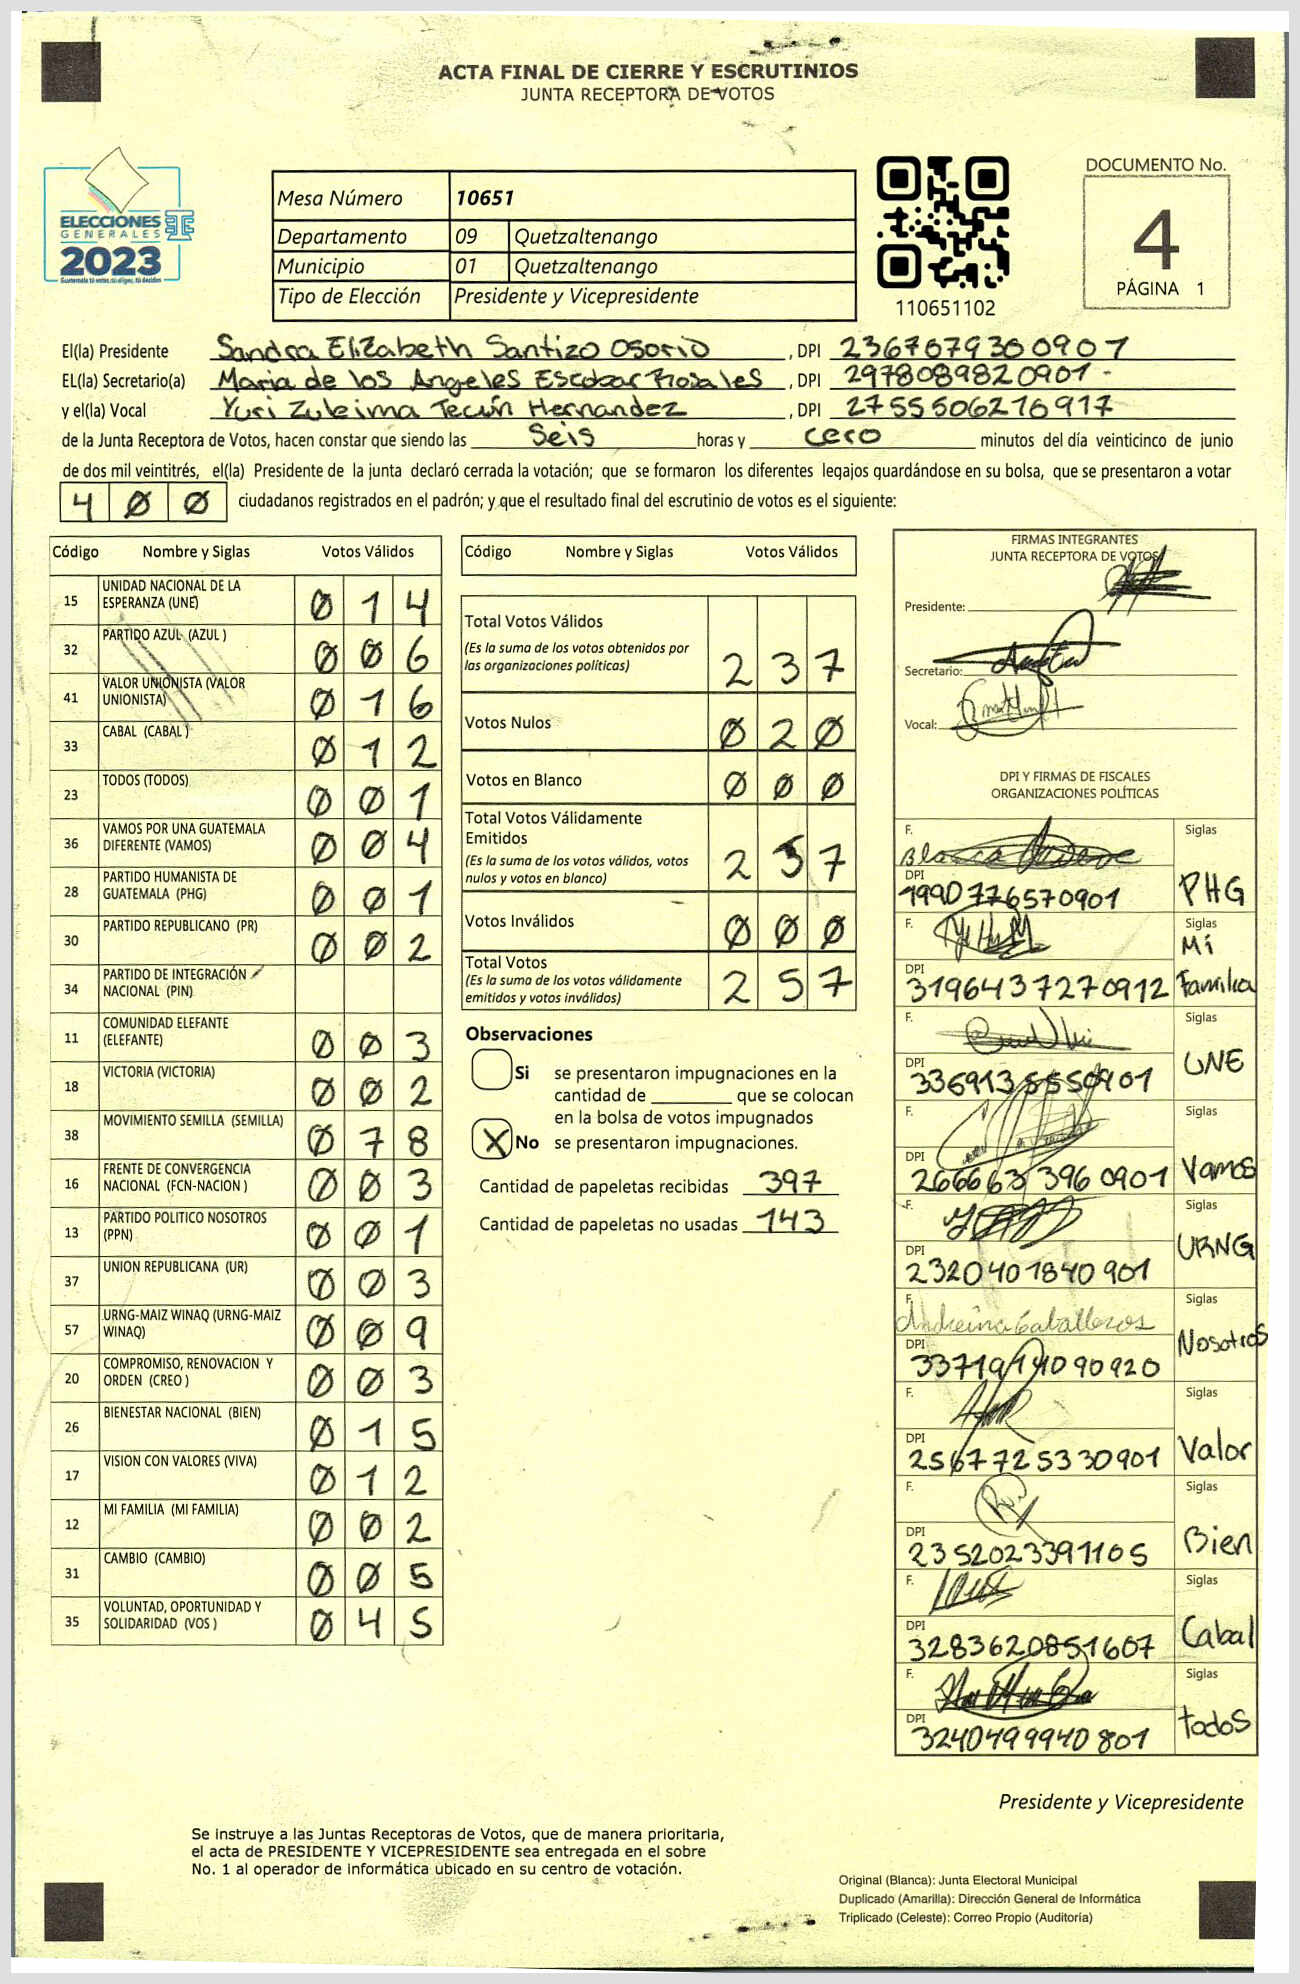 ACTA FINAL DE CIERRE Y ESCRUTINIOS
JUNTA RECEPTORA DE VOTOS
ELECCIONES
GENERALES
2023
Guatemala tú votas, tú eliges, tú decides
Mesa Número 10651
Departamento 09 Quetzaltenango
Municipio 01 Quetzaltenango
Tipo de Elección Presidente y Vicepresidente
110651102
DOCUMENTO No.
4
PÁGINA 1
El(la) Presidente Sandra Elizabeth Santizo Osorio , DPI 2367079300901
EL(la) Secretario(a) Maria de los Angeles Escobar Rosales , DPI 2978089820901
y el(la) Vocal Yuri Zuleima Tecún Hernandez , DPI 2755506216917
de la Junta Receptora de Votos, hacen constar que siendo las Seis horas y cero minutos del día veinticinco de junio
de dos mil veintitrés, el(la) Presidente de la junta declaró cerrada la votación; que se formaron los diferentes legajos guardándose en su bolsa, que se presentaron a votar
400 ciudadanos registrados en el padrón; y que el resultado final del escrutinio de votos es el siguiente:
Código Nombre y Siglas Votos Válidos
15 UNIDAD NACIONAL DE LA ESPERANZA (UNE) 014
32 PARTIDO AZUL (AZUL ) 006
41 VALOR UNIONISTA (VALOR UNIONISTA) 016
33 CABAL (CABAL ) 012
23 TODOS (TODOS) 001
36 VAMOS POR UNA GUATEMALA DIFERENTE (VAMOS) 004
28 PARTIDO HUMANISTA DE GUATEMALA (PHG) 001
30 PARTIDO REPUBLICANO (PR) 002
34 PARTIDO DE INTEGRACIÓN NACIONAL (PIN)
11 COMUNIDAD ELEFANTE (ELEFANTE) 003
18 VICTORIA (VICTORIA) 002
38 MOVIMIENTO SEMILLA (SEMILLA) 078
16 FRENTE DE CONVERGENCIA NACIONAL (FCN-NACION ) 003
13 PARTIDO POLITICO NOSOTROS (PPN) 001
37 UNION REPUBLICANA (UR) 003
57 URNG-MAIZ WINAQ (URNG-MAIZ WINAQ) 009
20 COMPROMISO, RENOVACION Y ORDEN (CREO ) 003
26 BIENESTAR NACIONAL (BIEN) 015
17 VISION CON VALORES (VIVA) 012
12 MI FAMILIA (MI FAMILIA) 002
31 CAMBIO (CAMBIO) 005
35 VOLUNTAD, OPORTUNIDAD Y SOLIDARIDAD (VOS ) 045
Código Nombre y Siglas Votos Válidos
Total Votos Válidos 237
(Es la suma de los votos obtenidos por
las organizaciones políticas)
Votos Nulos 020
Votos en Blanco 000
Total Votos Válidamente
Emitidos 257
(Es la suma de los votos válidos, votos
nulos y votos en blanco)
Votos Inválidos 000
Total Votos 257
(Es la suma de los votos válidamente
emitidos y votos inválidos)
Observaciones
Si se presentaron impugnaciones en la
cantidad de ________ que se colocan
en la bolsa de votos impugnados
X No se presentaron impugnaciones.
Cantidad de papeletas recibidas 397
Cantidad de papeletas no usadas 143
FIRMAS INTEGRANTES
JUNTA RECEPTORA DE VOTOS
Presidente:
Secretario:
Vocal:
DPI Y FIRMAS DE FISCALES
ORGANIZACIONES POLÍTICAS
F. Blanca Siglas
DPI 1990776570901 PHG
F. Siglas
DPI 3196437270912 Mi Familia
F. Siglas
DPI 3369135550901 UNE
F. Siglas
DPI 2666633960901 Vamos
F. Siglas
DPI 2320401840901 URNG
F. Andreina Caballeros Siglas
DPI 3371914090920 Nosotros
F. Siglas
DPI 2567725330901 Valor
F. Siglas
DPI 2352023391105 Bien
F. Siglas
DPI 3283620851607 Cabal
F. Siglas
DPI 3240499940801 todos
Presidente y Vicepresidente
Se instruye a las Juntas Receptoras de Votos, que de manera prioritaria,
el acta de PRESIDENTE Y VICEPRESIDENTE sea entregada en el sobre
No. 1 al operador de informática ubicado en su centro de votación.
Original (Blanca): Junta Electoral Municipal
Duplicado (Amarilla): Dirección General de Informática
Triplicado (Celeste): Correo Propio (Auditoría)